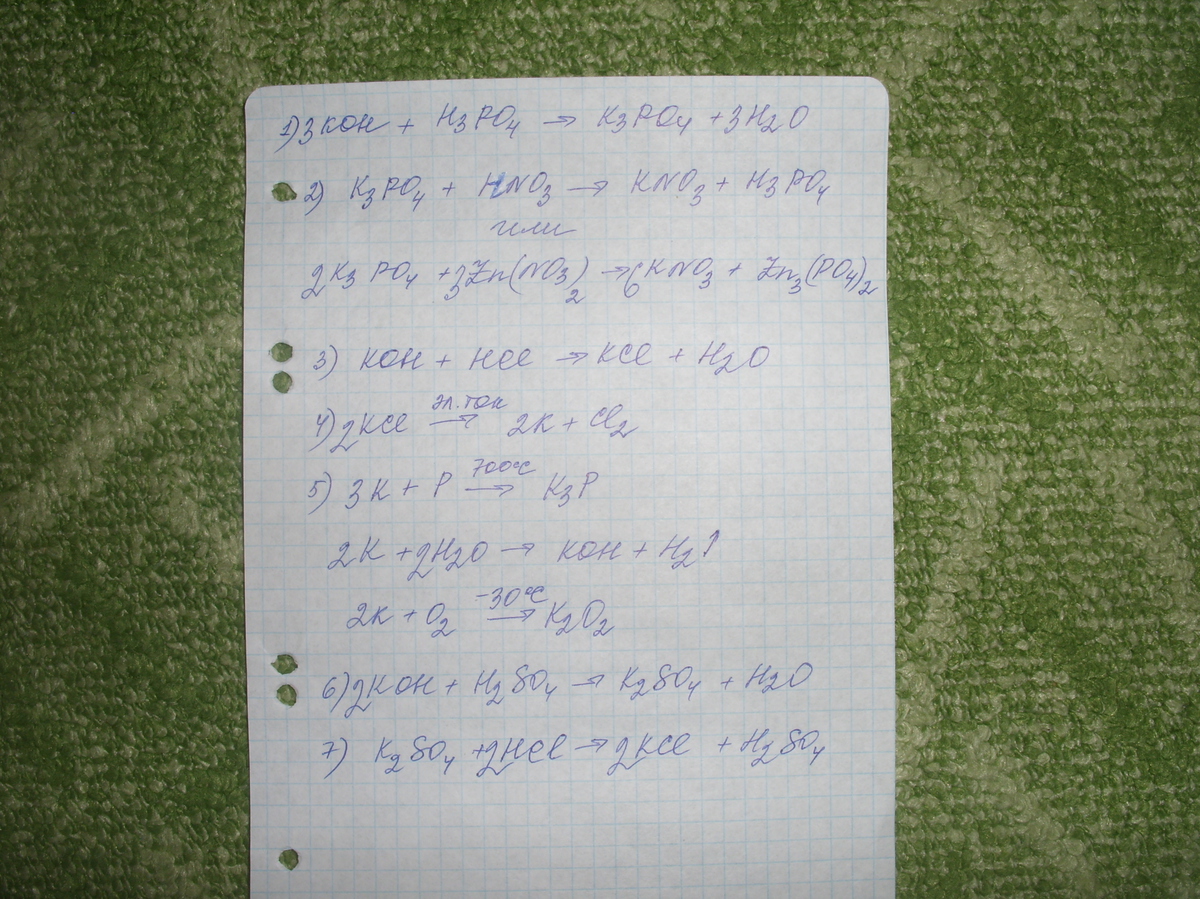 1) 3KOH + H₃PO₄ → K₃PO₄ + 3H₂O
2) K₃PO₄ + HNO₃ → KNO₃ + H₃PO₄
или
2K₃PO₄ + 3Zn(NO₃)₂ → 6KNO₃ + Zn₃(PO₄)₂
3) KOH + HCl → KCl + H₂O
эл.ток
4) 2KCl → 2K + Cl₂
700°C
5) 3K + P → K₃P
2K + 2H₂O → KOH + H₂↑
-30°C
2K + O₂ → K₂O₂
6) 2KOH + H₂SO₄ → K₂SO₄ + H₂O
7) K₂SO₄ + 2HCl → 2KCl + H₂SO₄